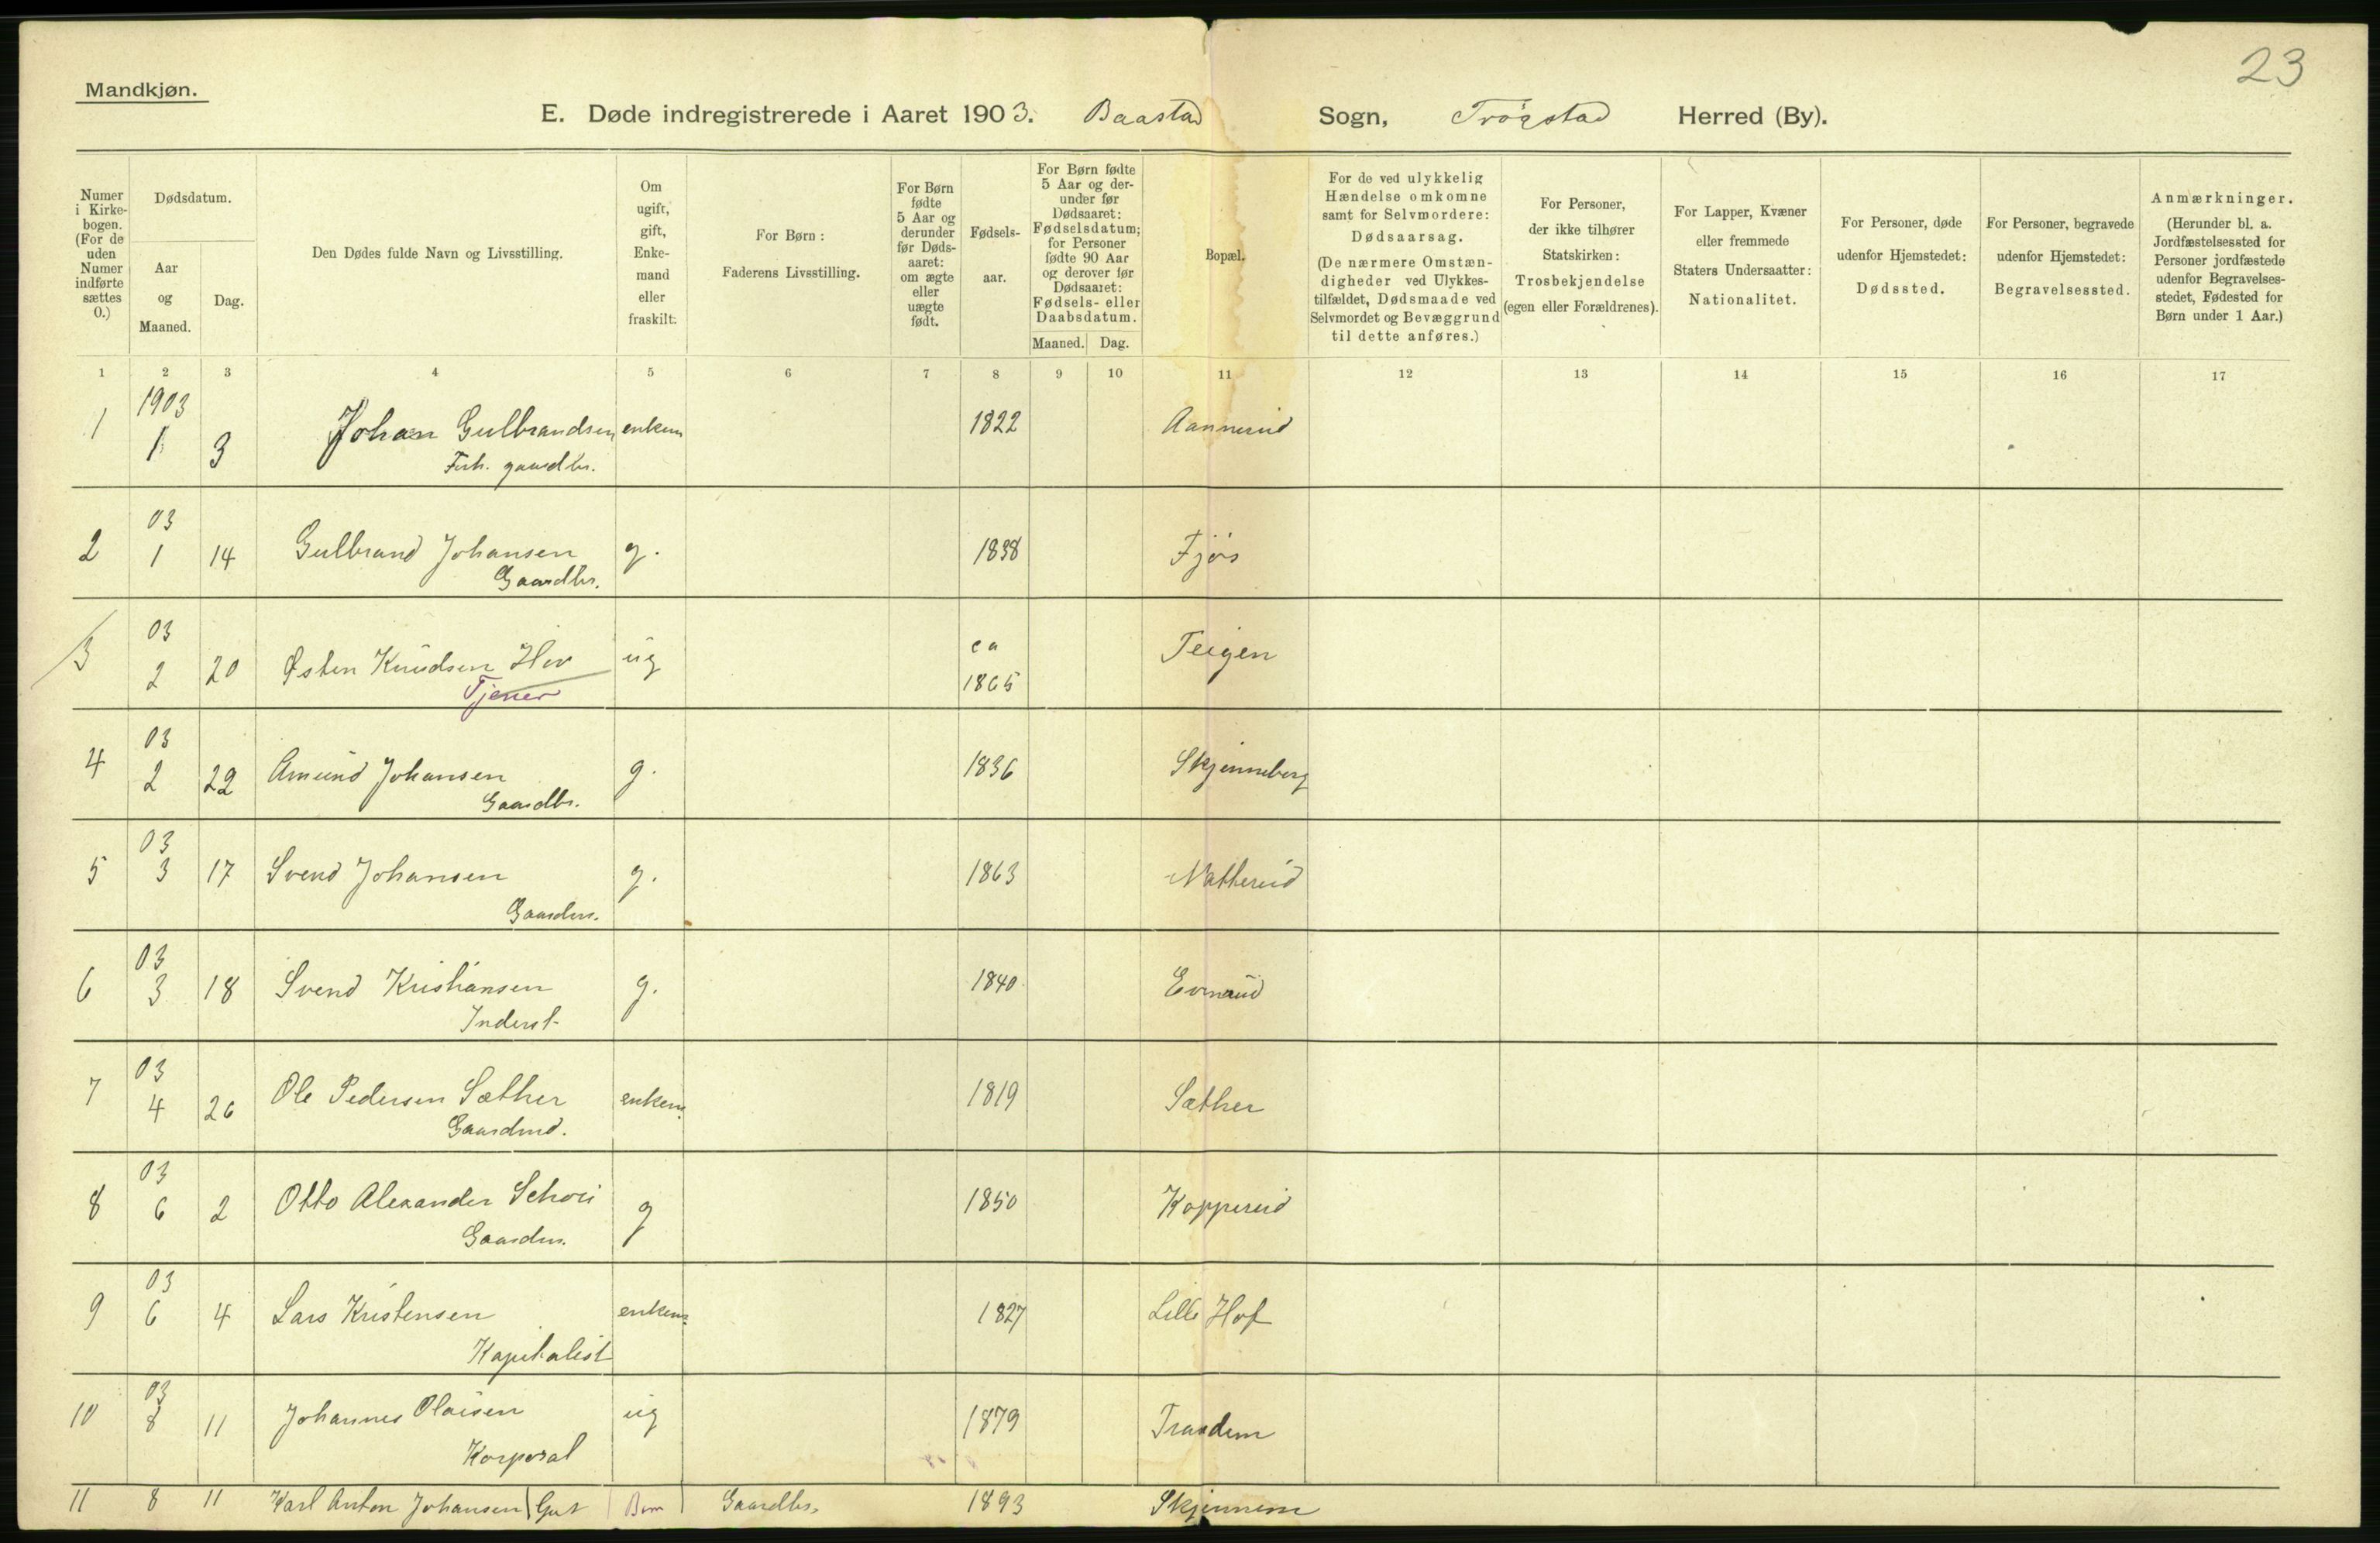 23
Mandkjøn.
E. Døde indregistrerede i Aaret 1903. Baastad Sogn, Trøgstad Herred (By).
Numer i Kirke-bogen. (For de uden Numer indførte sættes 0.)
Dødsdatum.
Aar og Maaned.
Dag.
Den Dødes fulde Navn og Livsstilling.
Om ugift, gift, Enke-mand eller fraskilt.
For Børn:
Faderens Livsstilling.
For Børn fødte 5 Aar og derunder før Døds-aaret: om ægte eller uægte født.
Fødsels-aar.
For Børn fødte 5 Aar og der-under før Dødsaaret: Fødselsdatum; for Personer fødte 90 Aar og derover før Dødsaaret: Fødsels- eller Daabsdatum.
Maaned. Dag.
Bopæl.
For de ved ulykkelig Hændelse omkomne samt for Selvmordere: Dødsaarsag.
(De nærmere Omstæn-digheder ved Ulykkes-tilfældet, Dødsmaade ved Selvmordet og Bevæggrund til dette anføres.)
For Personer, der ikke tilhører Statskirken: Trosbekjendelse (egen eller Forældrenes).
For Lapper, Kvæner eller fremmede Staters Undersaatter: Nationalitet.
For Personer, døde udenfor Hjemstedet: Dødssted.
For Personer, begravede udenfor Hjemstedet: Begravelsessted.
Anmærkninger.
(Herunder bl. a. Jordfæstelsessted for Personer jordfæstede udenfor Begravelses-stedet, Fødested for Børn under 1 Aar.)
1 2 3 4 5 6 7 8 9 10 11 12 13 14 15 16 17
1903
1 1 3 Johan Gulbrandsen enkem 1822 Aannerud
Forh. gaardbr.
03
2 1 14 Gulbrand Johansen g. 1838 Fjøs
Gaardbr.
03
3 2 20 Østen Knudsen Hov ug ca 1865 Teigen
Tjener
03
4 2 22 Amund Johansen g. 1836 Skjenneberg
Gaardbr.
03
5 3 17 Svend Johansen g. 1863 Natterud
Gaardbr.
03
6 3 18 Svend Kristiansen g. 1840
Inderst
03
7 4 26 Ole Pedersen Sæther enkem. 1819 Sæther
Gaardmd.
03
8 6 2 Otto Alexander Schou g 1850 Koppererud
Gaardbr.
03
9 6 4 Lars Kristensen enkem. 1827 Lille Hof
Kapitalist
03
10 8 11 Johannes Olausen ug 1879 Trandem
Korporal
11 8 11 Karl Anton Johansen Gut Barn Gaardbr. 1893 Skjennem